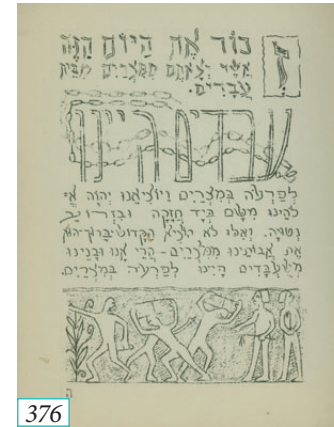 זכור את היום הזה
אשר יצאתם ממצרים מבית
עבדים.
עבדים היינו
לפרעה במצרים ויוציאנו יהוה א־
להינו משם ביד חזקה ובזרוע
נטויה. ואלו לא הוציא הקדוש־ברוך־הוא
את אבותינו ממצרים - הרי אנו ובנינו
משעבדים היינו לפרעה במצרים.
ה
376